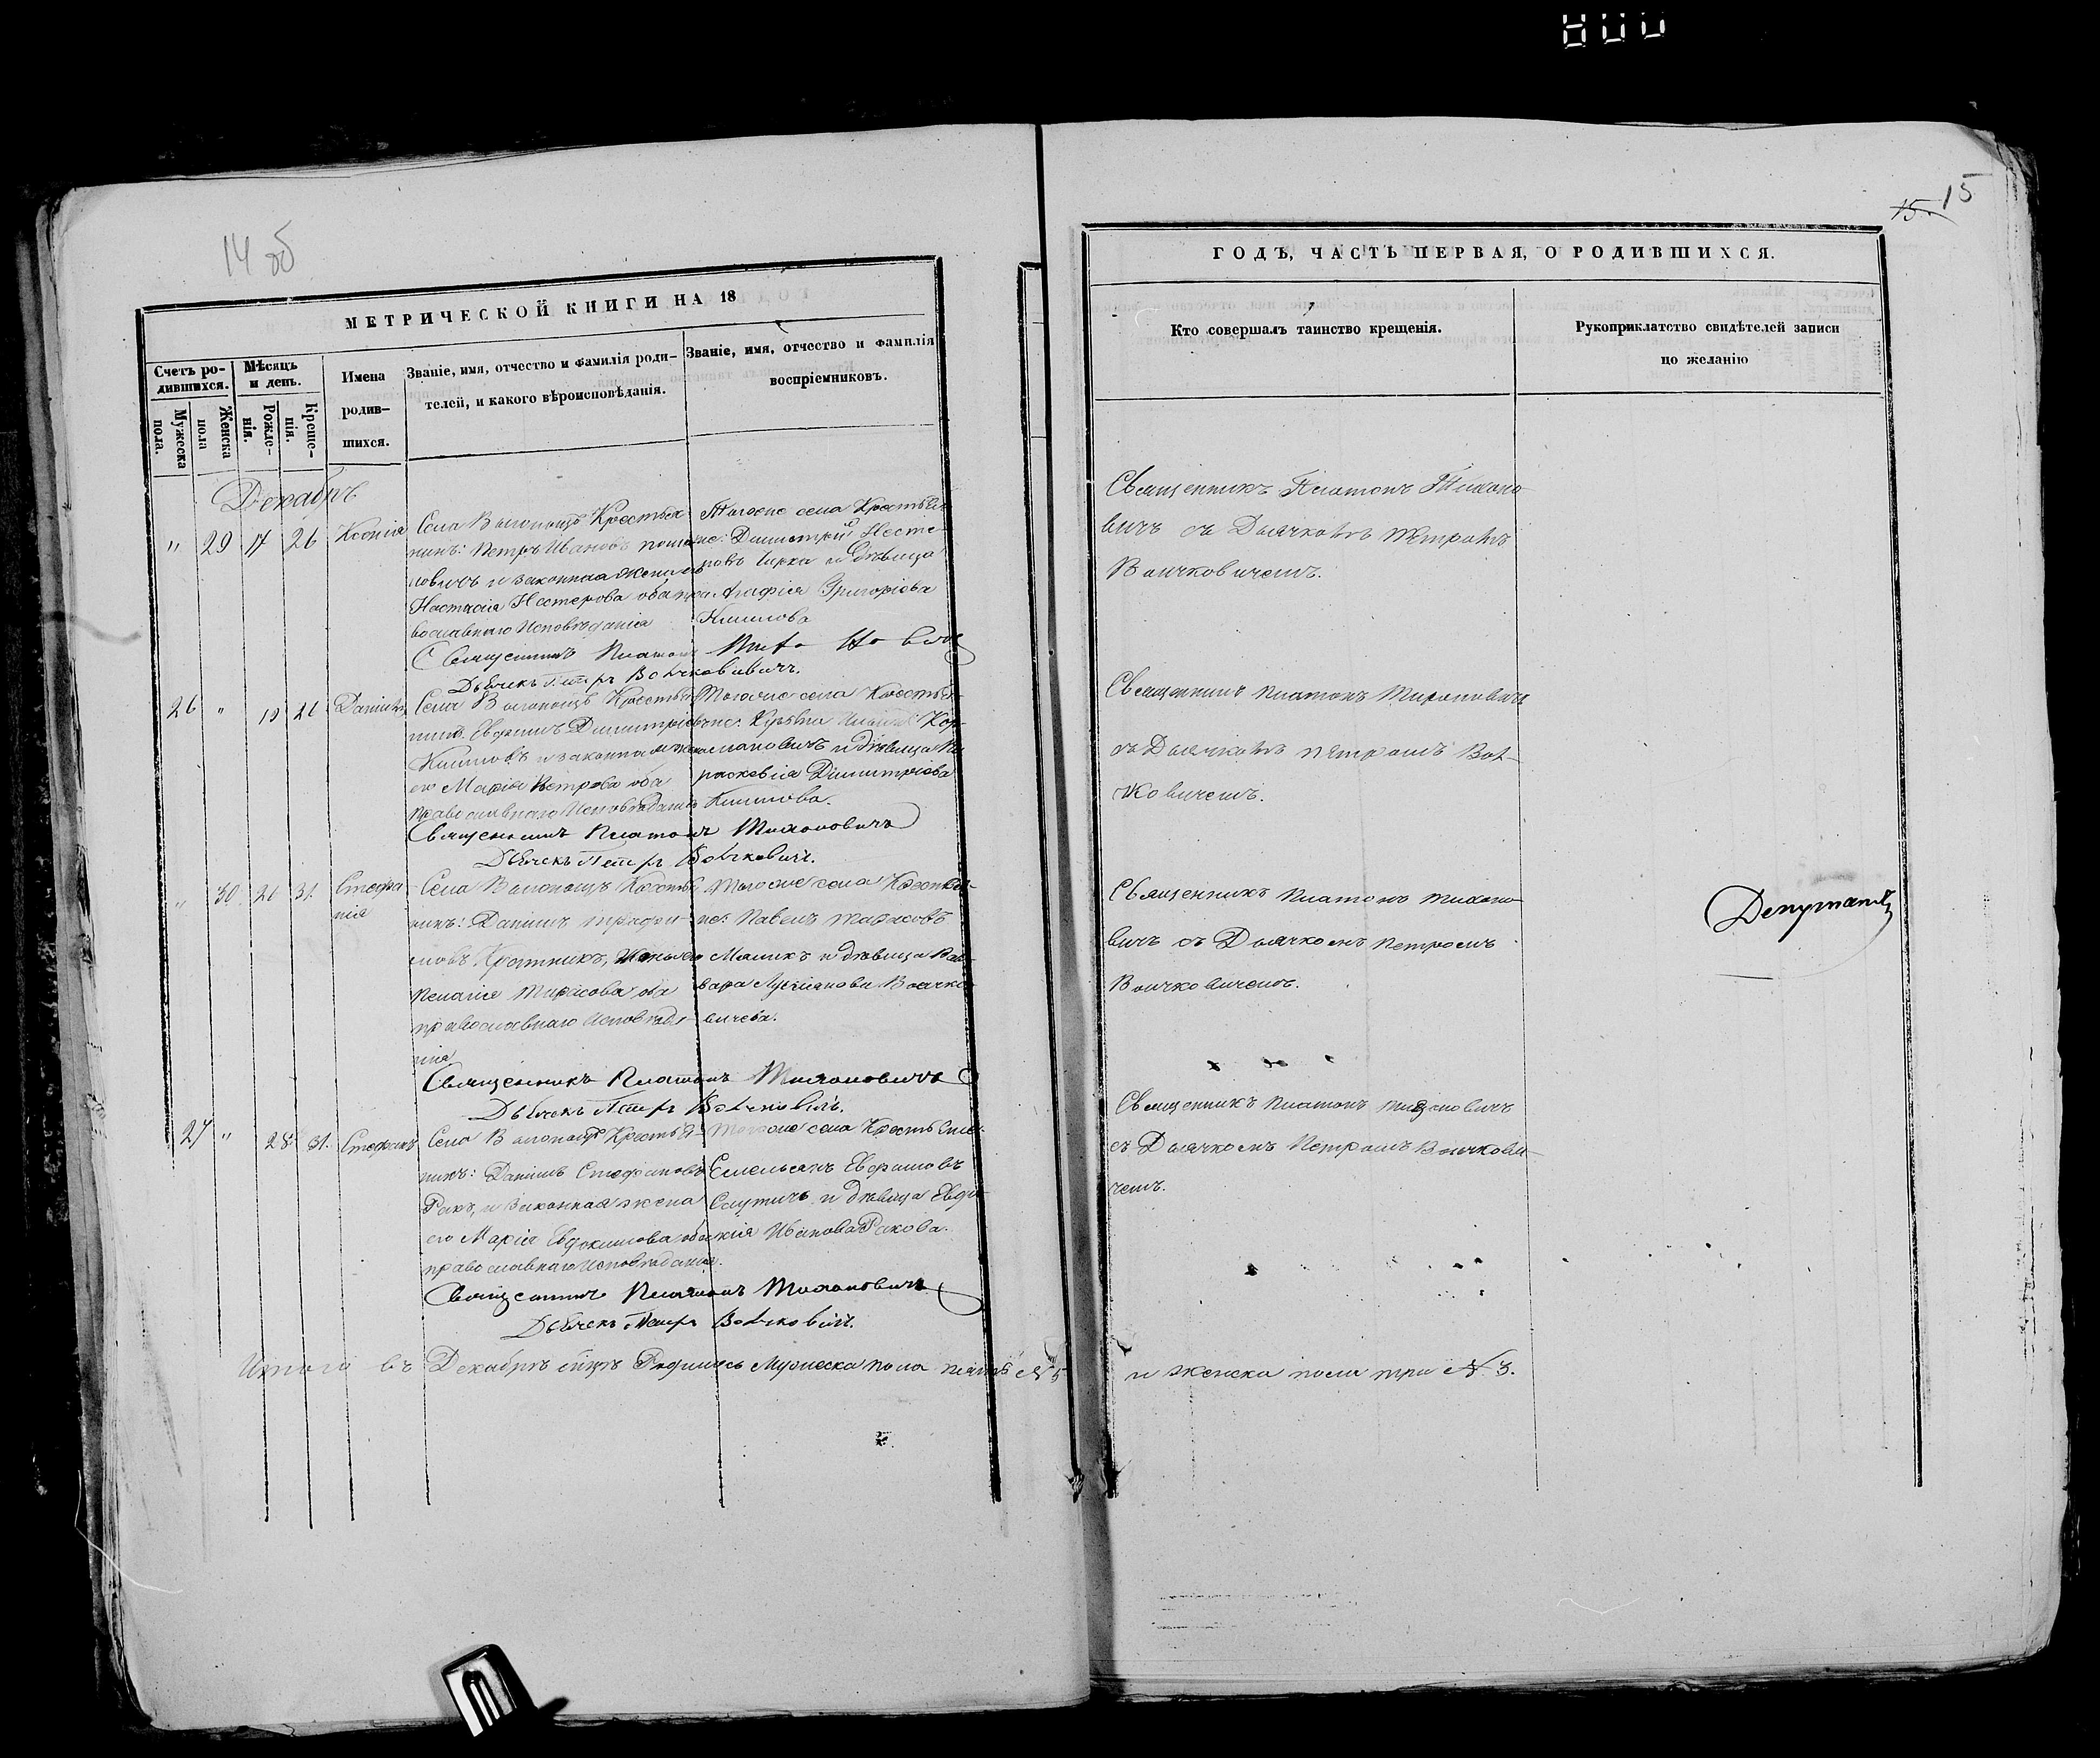 14 об
МЕТРИЧЕСКОЙ КНИГИ НА 18
Счетъ ро-
дившихся.
Мужеска
пола.
Женска
пола
Мѣсяцъ
и день.
Рожде-
нія.
Креще-
нія.
Имена
родив-
шихся.
Званіе, имя, отчество и фамилія роди-
телей, и какого вѣроисповѣданія.
Званіе, имя, отчество и фамилія
воспріемниковъ.
Декабрь
" 29 17 26 Ксенія
Села Крестья
нинъ: Петръ Ивановъ
и законная жена его
Настасія Нестерова оба пра
вославнаго Исповѣданія
Тогоже села Крестьян
не: Димитрій Несте
ровъ и дѣвица
Агафія Григоріева
Климова
Священникъ Платонъ
Дьячекъ Петръ
26 " 19 26 Даніилъ
Села Крестья
нинъ. Димитріевъ
Климовъ и законная жена
его Марія Петрова оба
православнаго Исповѣданія
Тогоже села Крестья-
не:
и дѣвица Па
раскевія Димитріева
Климова.
Священникъ Платонъ Тихоновичъ
Дьячекъ Петръ Волчковичъ.
" 30 26 31. Стефа
нія
Села Крестья
нинъ: Даніилъ Трофи-
мовъ жена его
Пелагія Тарасова оба
православнаго Исповѣда-
нія
Тогоже села Крестья-
не: Павелъ Тарасовъ
и дѣвица Вар-
вара Волчко-
вичева.
Священникъ Платонъ Тихоновичъ
Дьячекъ Петръ Волчковичъ.
27 " 28 31. Стефанъ
Села Крестья-
нинъ: Даніилъ Стефановъ
Ракъ, и законная жена
его Марія Евдокимова оба
православнаго Исповѣданія.
Тогоже села Крестьяне:
Емельянъ
и дѣвица Евдо-
кія Иванова Ракова.
Священникъ Платонъ Тихоновичъ
Дьячекъ Петръ Волчковичъ.
Итого въ Декабрѣ Родилось Мужеска пола пять № 5
15. 15
ГОДЪ, ЧАСТЬ ПЕРВАЯ, О РОДИВШИХСЯ.
Кто совершалъ таинство крещенія.
Рукоприклатство свидѣтелей записи
по желанію
Священникъ Платонъ Тихоно
вичъ съ Дьячкомъ Петромъ
Волчковичемъ.
Священникъ Платонъ Тихоновичъ
съ Дьячкомъ Петромъ Вол-
чковичемъ.
Священникъ Платонъ Тихоно
вичъ съ Дьячкомъ Петромъ
Волчковичемъ.
Депутатъ
Священникъ Платонъ Тихоновичъ
съ Дьячкомъ Петромъ Волчкови-
чемъ.
и женска пола три № 3.